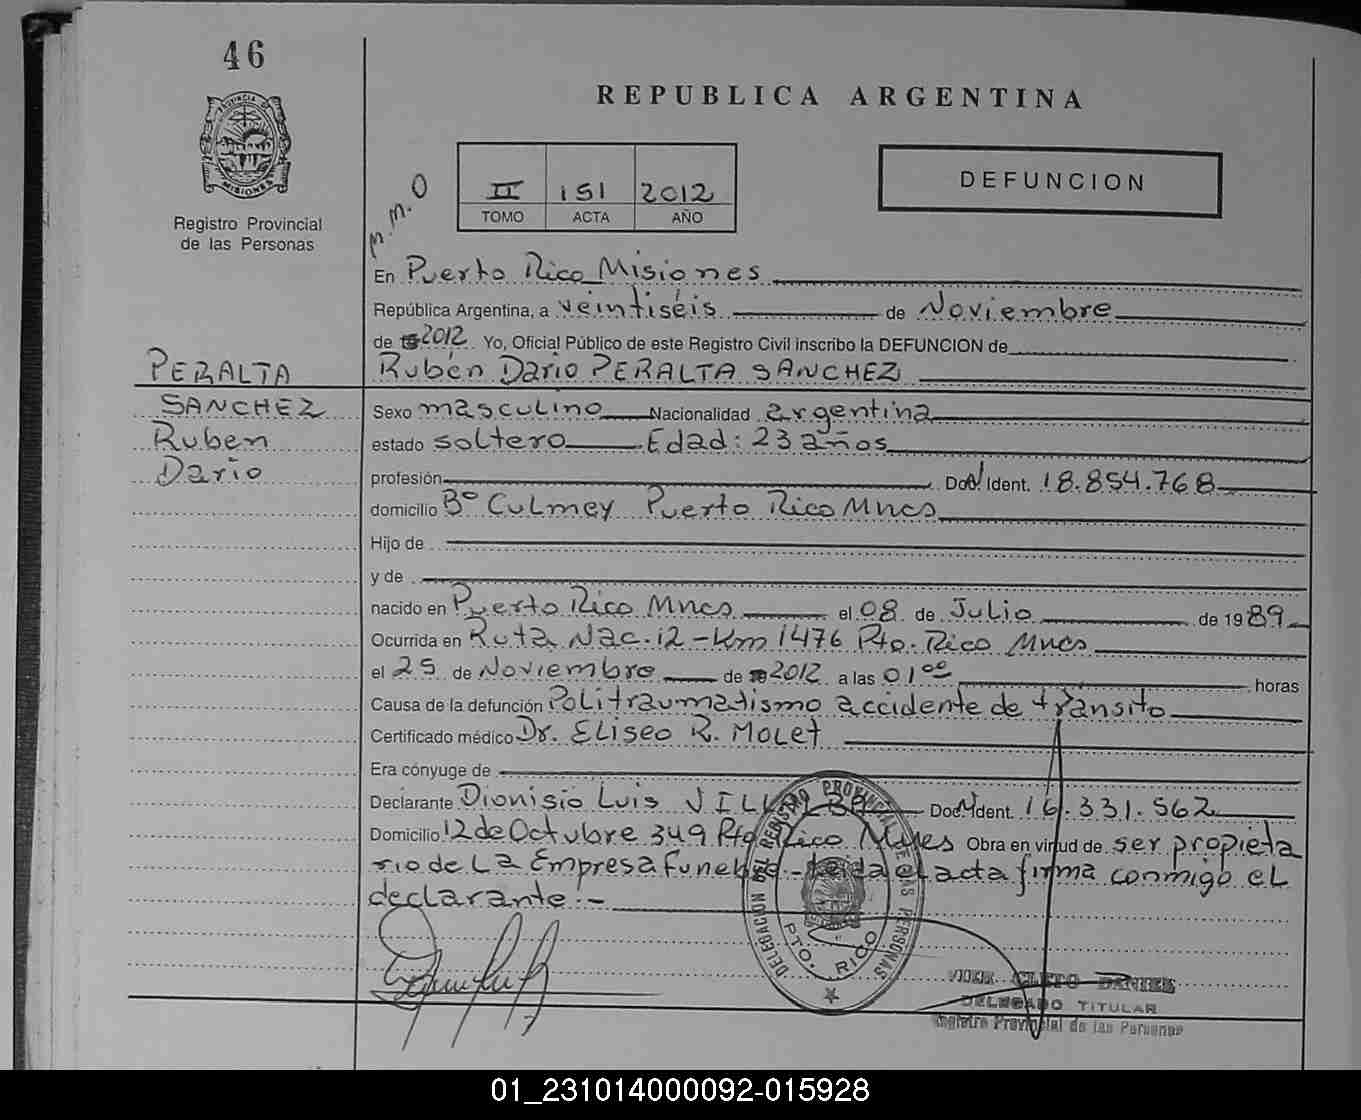 46
REPUBLICA ARGENTINA
PROVINCIA DE
MISIONES
Registro Provincial
de las Personas
DEFUNCION
II 151 2012
TOMO ACTA AÑO
M.M.O
En Puerto Rico Misiones
República Argentina, a veintiséis de Noviembre
de 2012 Yo, Oficial Público de este Registro Civil inscribo la DEFUNCION de
Rubén Dario PERALTA SANCHEZ
PERALTA
SANCHEZ
Ruben
Dario
Sexo masculino Nacionalidad argentina
estado soltero Edad: 23 años
profesión Doc. Ident. 18.854.768
domicilio Bº Culmey Puerto Rico Mnes
Hijo de
y de
nacido en Puerto Rico Mnes el 08 de Julio de 1989
Ocurrida en Ruta Nac. 12 - Km 1476 Pto. Rico Mnes
el 25 de Noviembre de 2012 a las 01 00 horas
Causa de la defunción Politraumatismo accidente de tránsito
Certificado médico Dr. Eliseo R. Molet
Era cónyuge de
Declarante Dionisio Luis Doc. Ident. 16.331.562
Domicilio 12 de Octubre 349 Pto Rico Mnes Obra en virtud de ser propieta
rio de La Empresa Funebre - Leida el acta firma conmigo el
declarante.-
DELEGACION DEL REGISTRO PROVINCIAL DE LAS PERSONAS
PTO. RICO
CLETO DANIEL
DELEGADO TITULAR
Registro Provincial de las Personas
01_231014000092-015928